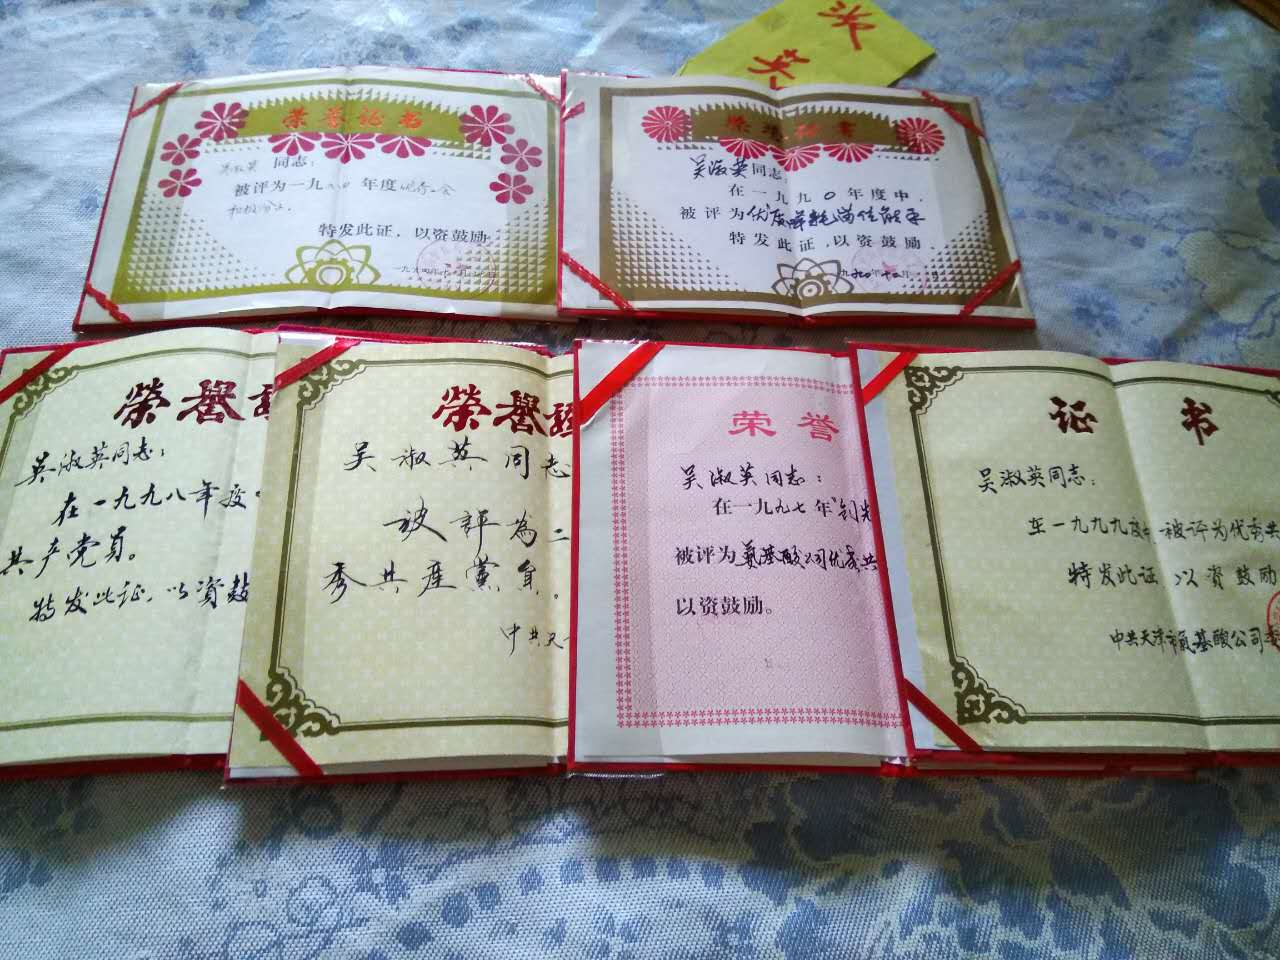 英
荣誉证书
吴淑英 同志：
被评为一九 年度
积极分子.
特发此证，以资鼓励
荣誉证书
吴淑英同志：
在一九九0年度中
被评为优质
特发此证，以资鼓励
榮譽
吴淑英同志：
在一九九八年度
共产党员。
特发此证，以资鼓
榮譽
吴淑英同志
被評為二
秀共產黨員。
中共天
荣誉
吴淑英同志：
在一九九七年
被评为氨基酸公司优秀共
以资鼓励。
证书
吴淑英同志：
在一九九九度中被评为优秀共
特发此证 以资鼓励
中共天津市氨基酸公司委